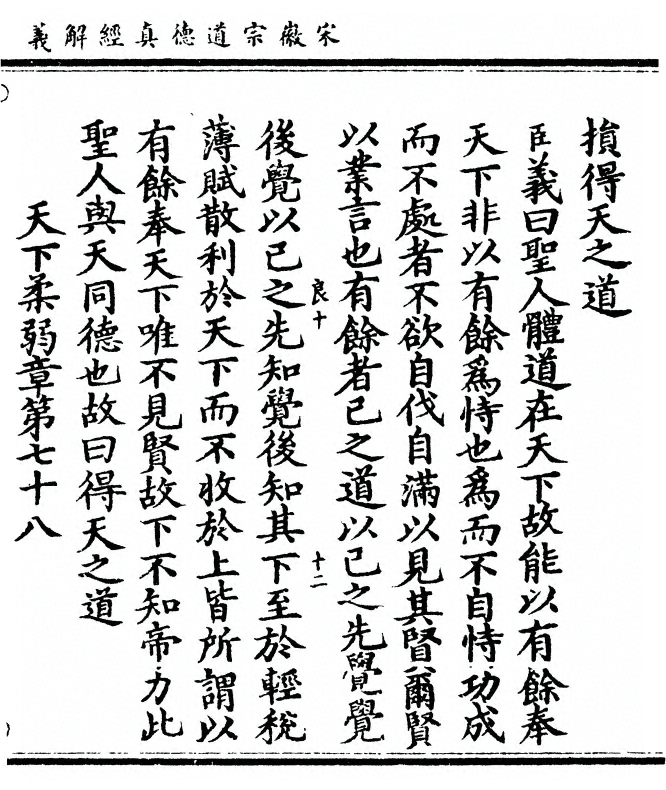 宋徽宗道德真經解義
損得天之道
臣義曰聖人體道在天下故能以有餘奉
天下非以有餘爲恃也爲而不自恃功成
而不處者不欲自伐自滿以見其賢爾賢
以業言也有餘者己之道以己之先覺覺
良十
十二
後覺以己之先知覺後知其下至於輕稅
薄賦散利於天下而不收於上皆所謂以
有餘奉天下唯不見賢故下不知帝力此
聖人與天同德也故曰得天之道
天下柔弱章第七十八